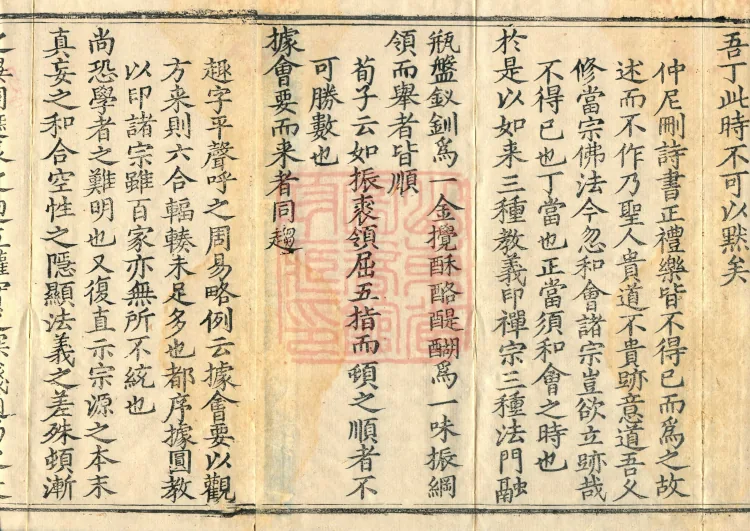 吾丁此時不可以默矣
仲尼刪詩書正禮樂皆不得已而爲之故
述而不作乃聖人貴道不貴跡意道吾乂
修當宗佛法今忽和會諸宗豈欲立跡哉
不得已也丁當也正當須和會之時也
於是以如来三種教義印禪宗三種法門融
瓶盤釵釧爲一金攪酥酪醍醐爲一味振綱
領而舉者皆順
荀子云如振裘領屈五指而頓之順者不
可勝數也
據會要而来者同趨
趣字平聲呼之周易略例云據會要以觀
方来則六合輻輳未足多也都序據圓教
以印諸宗雖百家亦無所不統也
尚恐學者之難明也又復直示宗源之本末
真妄之和合空性之隱顯法義之差殊頓漸